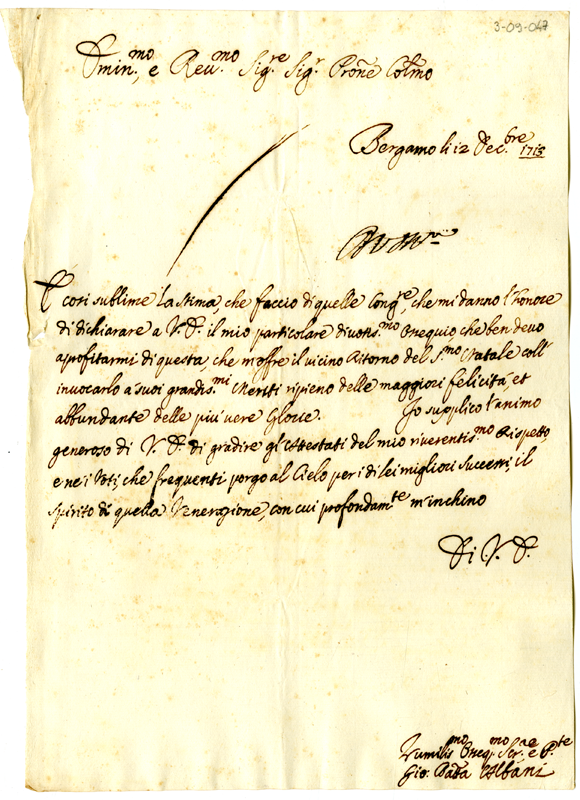 3-09-047
Emin.mo, e Reu.mo Sig.re Sig.r Prone Colmo
Bergamo li 12 Dec.bre 1713
È cosi sublime la stima, che faccio di quelle Cong.re, che mi danno l'honore
di dichiarare a V. E. il mio particolare diuotis.mo Ossequio, che ben deuo
aprofitarmi di questa, che m'offre il uicino Ritorno del S.mo Natale coll'
inuocarlo a suoi grandis.mi Meriti ripieno delle maggiori felicità, et
abbundante delle più uere Glorie. Io supplico l'animo
generoso di V. E. di gradire gl'Attestati del mio riuerentis.mo Rispetto,
e ne i Voti, che frequenti porgo al Cielo per i di lei migliori Successi, il
spirito di quella Venerazione, con cui profondam.te m'inchino
Di V. E.
Humilis.mo Osseq.mo Ser.e
Gio: Batta Albani